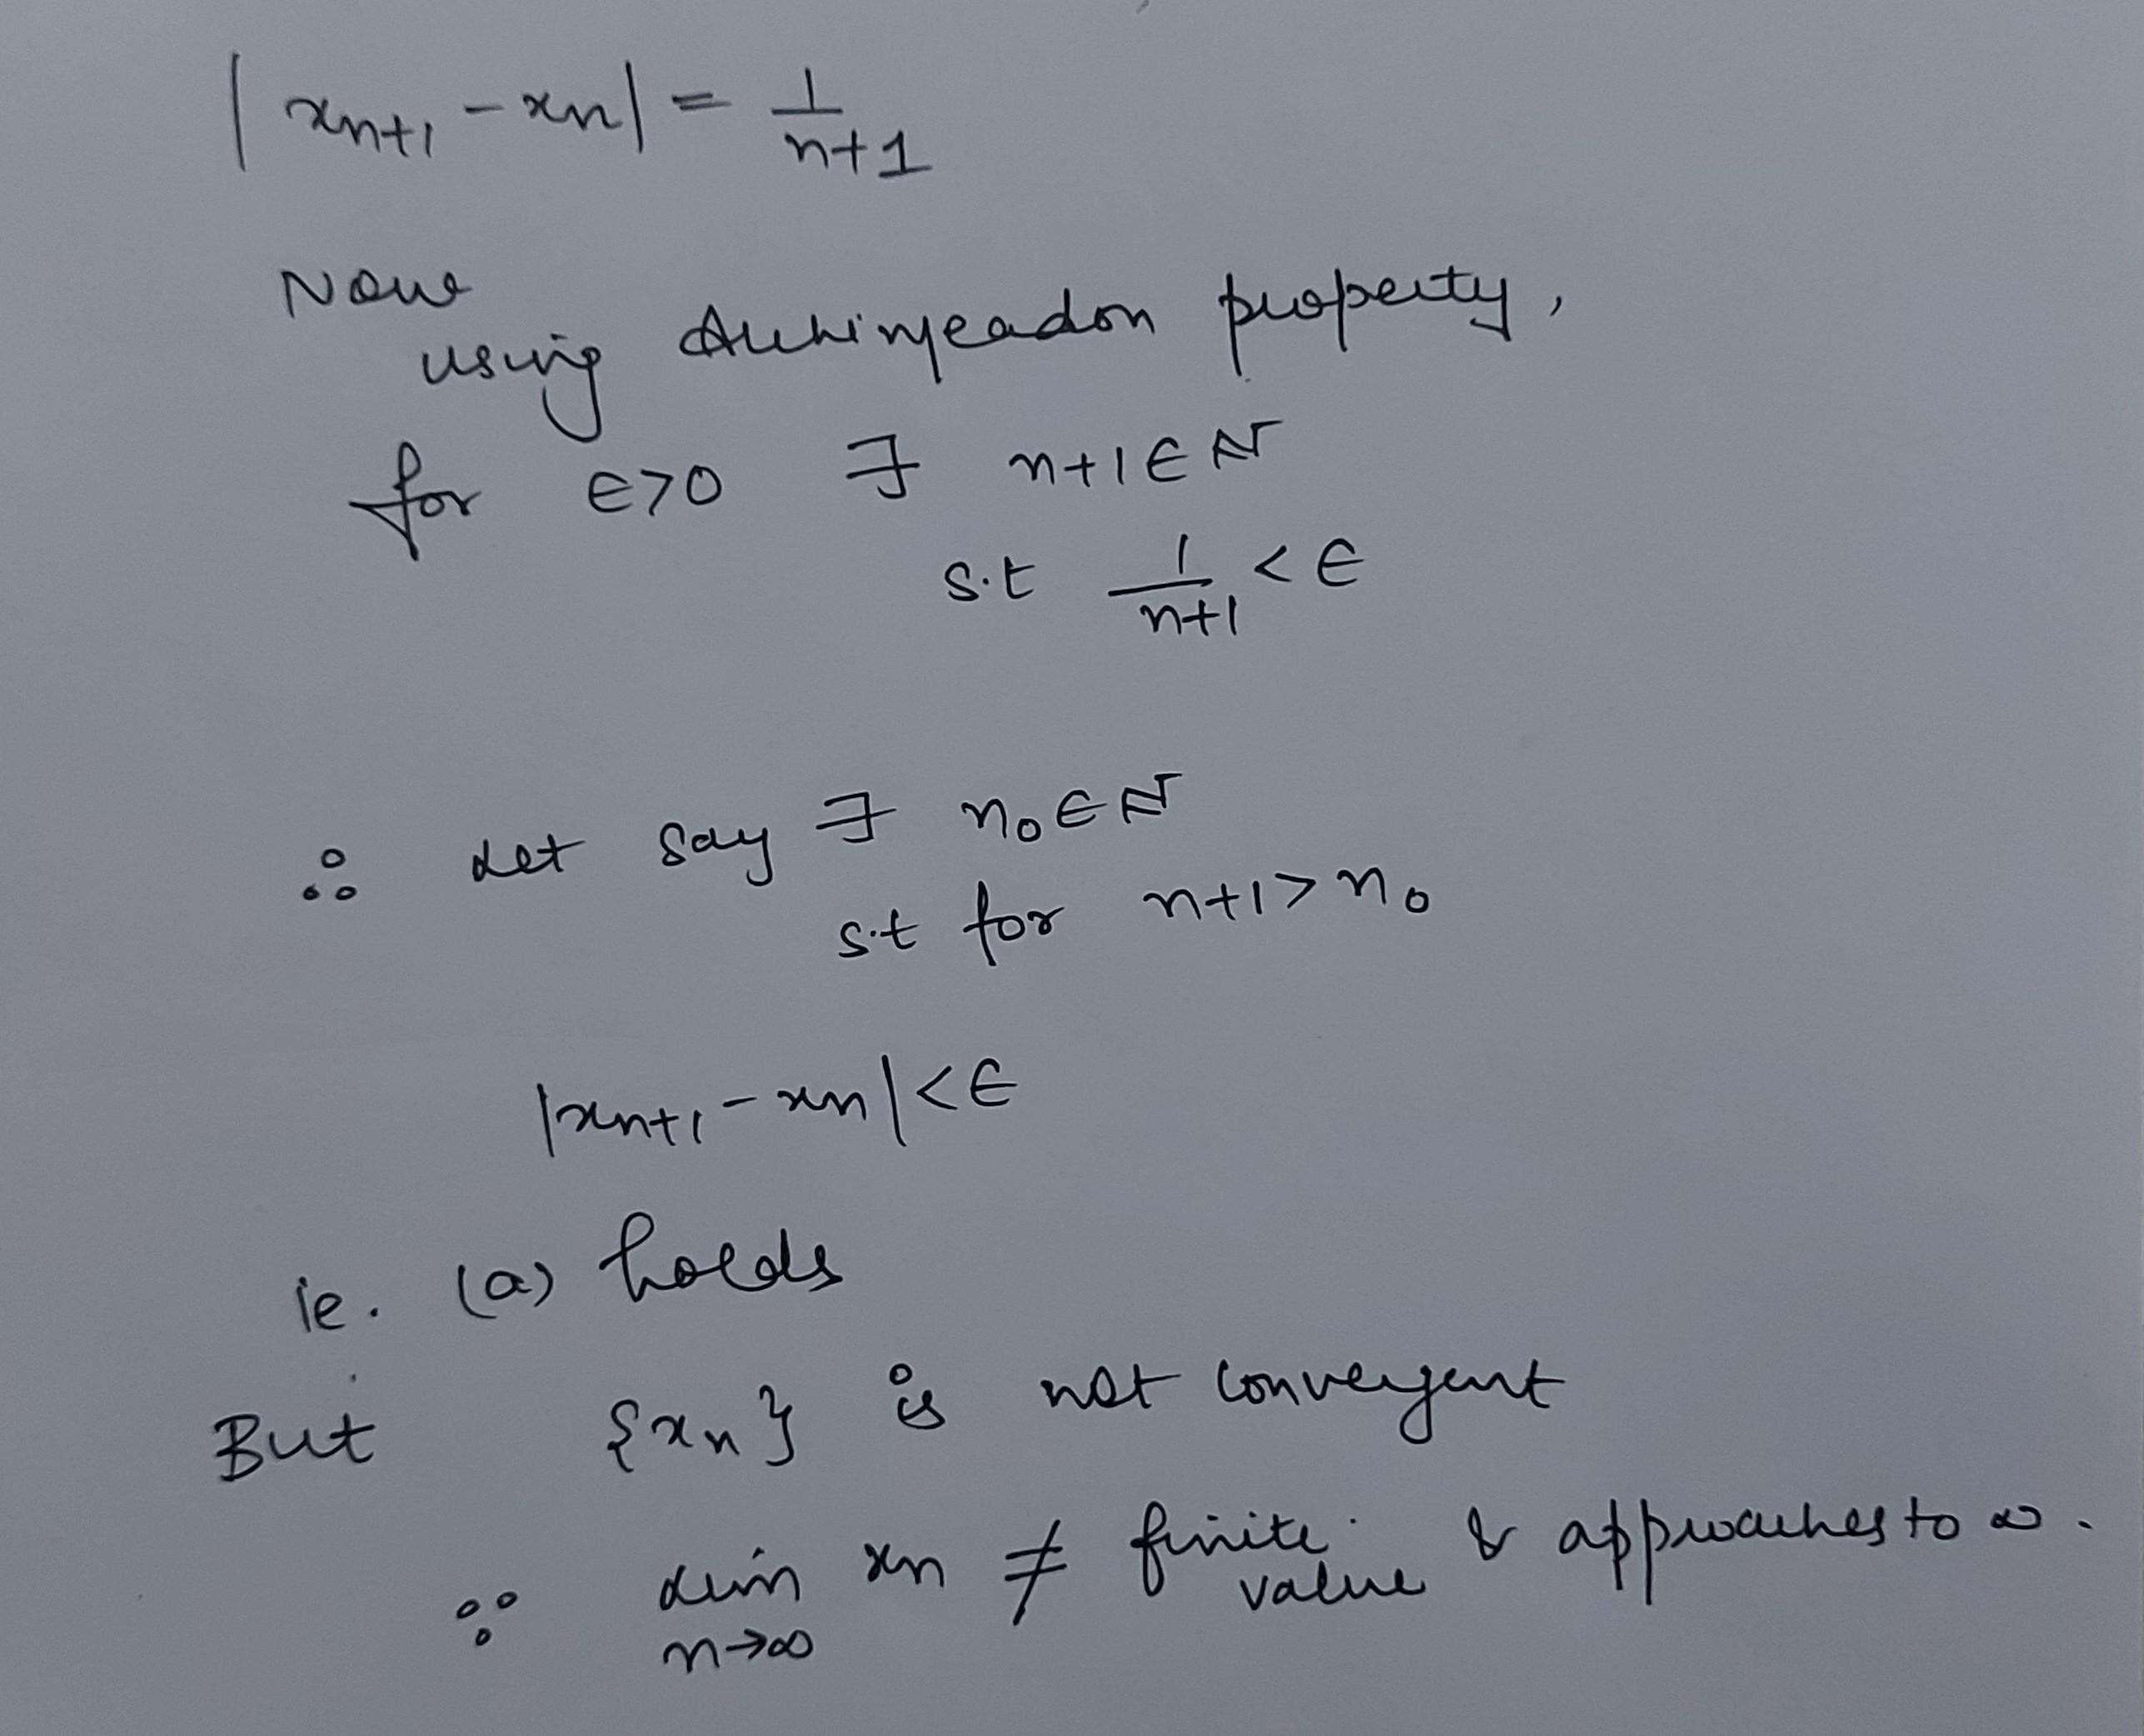 | xn+1 - xn | = 1/n+1
Now
using Archimeadon property,
for ϵ>0 ∃ n+1 ∈ ℕ
s.t 1/n+1 < ϵ
∴ Let say ∃ n₀ ∈ ℕ
s.t for n+1 > n₀
|xn+1 - xn| < ϵ
ie. (a) holds
But {xn} is not convergent
∵ lim n→∞ xn ≠ finite value & approaches to ∞.